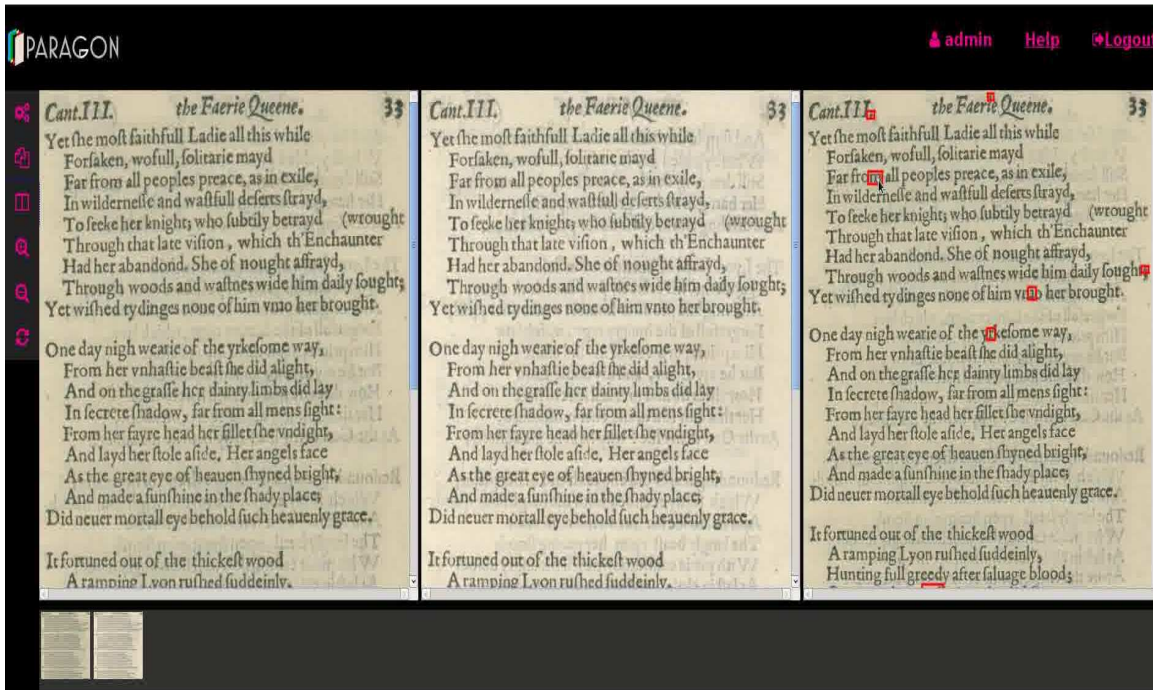 PARAGON
admin Help Logout
Cant.III. the Faerie Queene. 33
Yet ſhe moſt faithfull Ladie all this while
Forſaken, wofull, ſolitarie mayd
Far from all peoples preace, as in exile,
In wilderneſſe and waſtfull deſerts ſtrayd,
To ſeeke her knight; who ſubtily betrayd (wrought
Through that late viſion, which th'Enchaunter
Had her abandond. She of nought affrayd,
Through woods and waſtnes wide him daily ſought;
Yet wiſhed tydinges none of him vnto her brought.
One day nigh wearie of the yrkeſome way,
From her vnhaſtie beaſt ſhe did alight,
And on the graſſe her dainty limbs did lay
In ſecrete ſhadow, far from all mens ſight:
From her fayre head her fillet ſhe vndight,
And layd her ſtole aſide. Her angels face
As the great eye of heauen ſhyned bright,
And made a ſunſhine in the ſhady place;
Did neuer mortall eye behold ſuch heauenly grace.
It fortuned out of the thickeſt wood
A ramping Lyon ruſhed ſuddeinly,
Cant.III. the Faerie Queene. 33
Yet ſhe moſt faithfull Ladie all this while
Forſaken, wofull, ſolitarie mayd
Far from all peoples preace, as in exile,
In wilderneſſe and waſtfull deſerts ſtrayd,
To ſeeke her knight; who ſubtily betrayd (wrought
Through that late viſion, which th'Enchaunter
Had her abandond. She of nought affrayd,
Through woods and waſtnes wide him daily ſought;
Yet wiſhed tydinges none of him vnto her brought.
One day nigh wearie of the yrkeſome way,
From her vnhaſtie beaſt ſhe did alight,
And on the graſſe her dainty limbs did lay
In ſecrete ſhadow, far from all mens ſight:
From her fayre head her fillet ſhe vndight,
And layd her ſtole aſide. Her angels face
As the great eye of heauen ſhyned bright,
And made a ſunſhine in the ſhady place;
Did neuer mortall eye behold ſuch heauenly grace.
It fortuned out of the thickeſt wood
A ramping Lyon ruſhed ſuddeinly,
Cant.III. the Faerie Queene. 33
Yet ſhe moſt faithfull Ladie all this while
Forſaken, wofull, ſolitarie mayd
Far from all peoples preace, as in exile,
In wilderneſſe and waſtfull deſerts ſtrayd,
To ſeeke her knight; who ſubtily betrayd (wrought
Through that late viſion, which th'Enchaunter
Had her abandond. She of nought affrayd,
Through woods and waſtnes wide him daily ſought;
Yet wiſhed tydinges none of him vnto her brought.
One day nigh wearie of the yrkeſome way,
From her vnhaſtie beaſt ſhe did alight,
And on the graſſe her dainty limbs did lay
In ſecrete ſhadow, far from all mens ſight:
From her fayre head her fillet ſhe vndight,
And layd her ſtole aſide. Her angels face
As the great eye of heauen ſhyned bright,
And made a ſunſhine in the ſhady place;
Did neuer mortall eye behold ſuch heauenly grace.
It fortuned out of the thickeſt wood
A ramping Lyon ruſhed ſuddeinly,
Hunting full greedy after ſaluage blood;